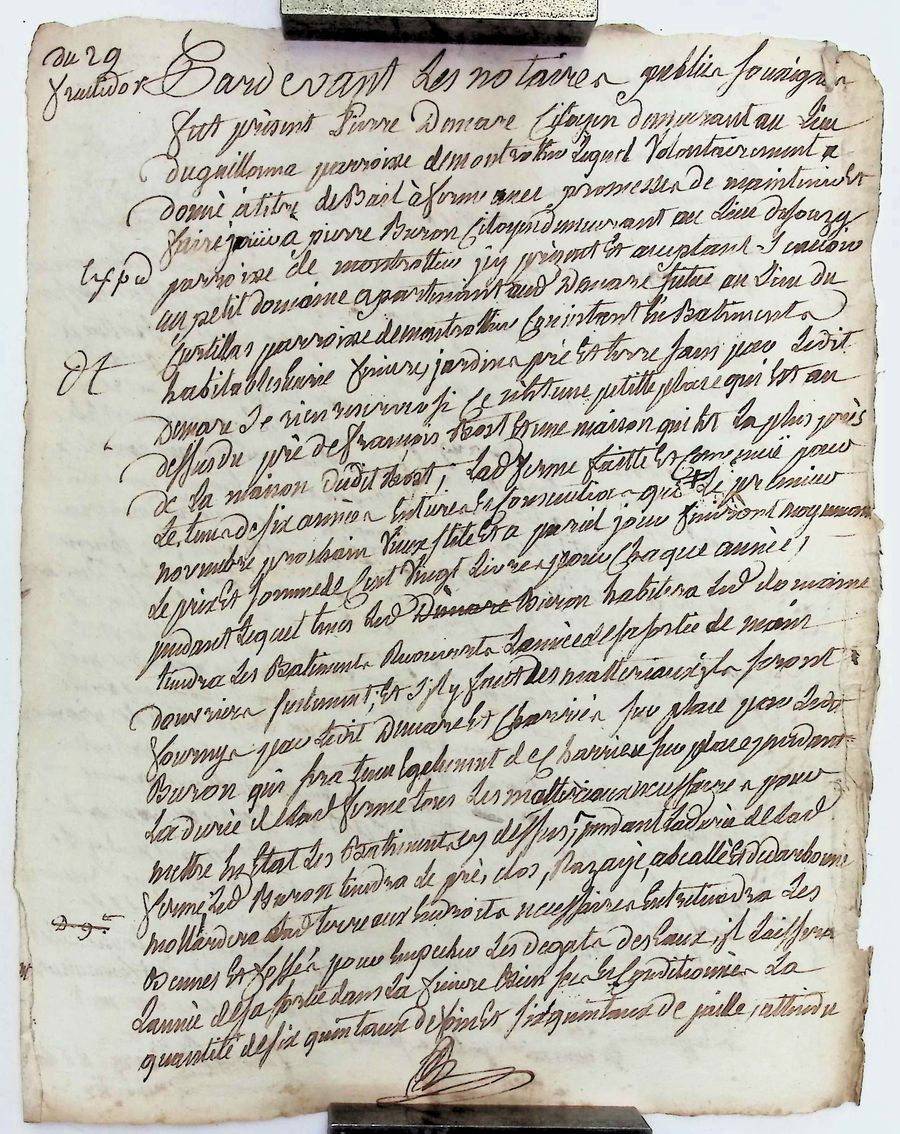 du 29
fructidor
Pardevant les notaires publics soussignés
fut présent Pierre Demare Citoyen demeurant au Lieu
Duguillerma parroisse demontrottier Lequel Volontairement a
donné àtitre deBail à ferme avec promesse de maintenir Et
faire jouir a pierre Buron Citoyen demeurant au Lieu
Expd
parroisse de montrottier jcy présent Et acceptant
un petit domaine apartenant aud Demare situé au Lieu du
Curtillas parroisse demontrottier Consistant En Batiments
dt
habitables Ecurie feniere, jardins prés Et terre sans par Ledit
Demare Se rien reserver si Ce n'est une petitte place qui Est au
dessus du pré de françois Bost Et une maison qui Est La plus près
de La maison dudit Bost; Lad ferme faitte Et Convenuë pour
Le tems de six années Entieres Et Consecutives qui
novembre prochain Vieux stile Et a pareil jour finiront moyennant
Le prix Et somme de Cent Vingt Livres pour Chaque année;
pendant Lequel tems Led Demare Buron habitera Led domaine
tiendra Les Batiments Recouverts Lannée de sa sortie de main
douvriers seulement, Et s'il y faut des matteriaux ils seront
fournys par Ledit Demare Et Charriés sur place par Ledit
Buron qui sera tenu Egalement de Charrier sur place pendant
La durée de Lad ferme tous Les matteriaux necessaires pour
mettre En Etat Les Batiments cy dessus; pendant Ladurée de Lad
ferme Led Buron tiendra Le pré, clos,
aux Endroits necessaires Entretiendra Les
29e
Et fossés pour Empecher Les degats des Eaux, il Laissera
Lannée desa sortie dans La feniere Bien sec Et Conditionnés La
quantité desix quintaux de foin Et six quintaux de paille, attendu